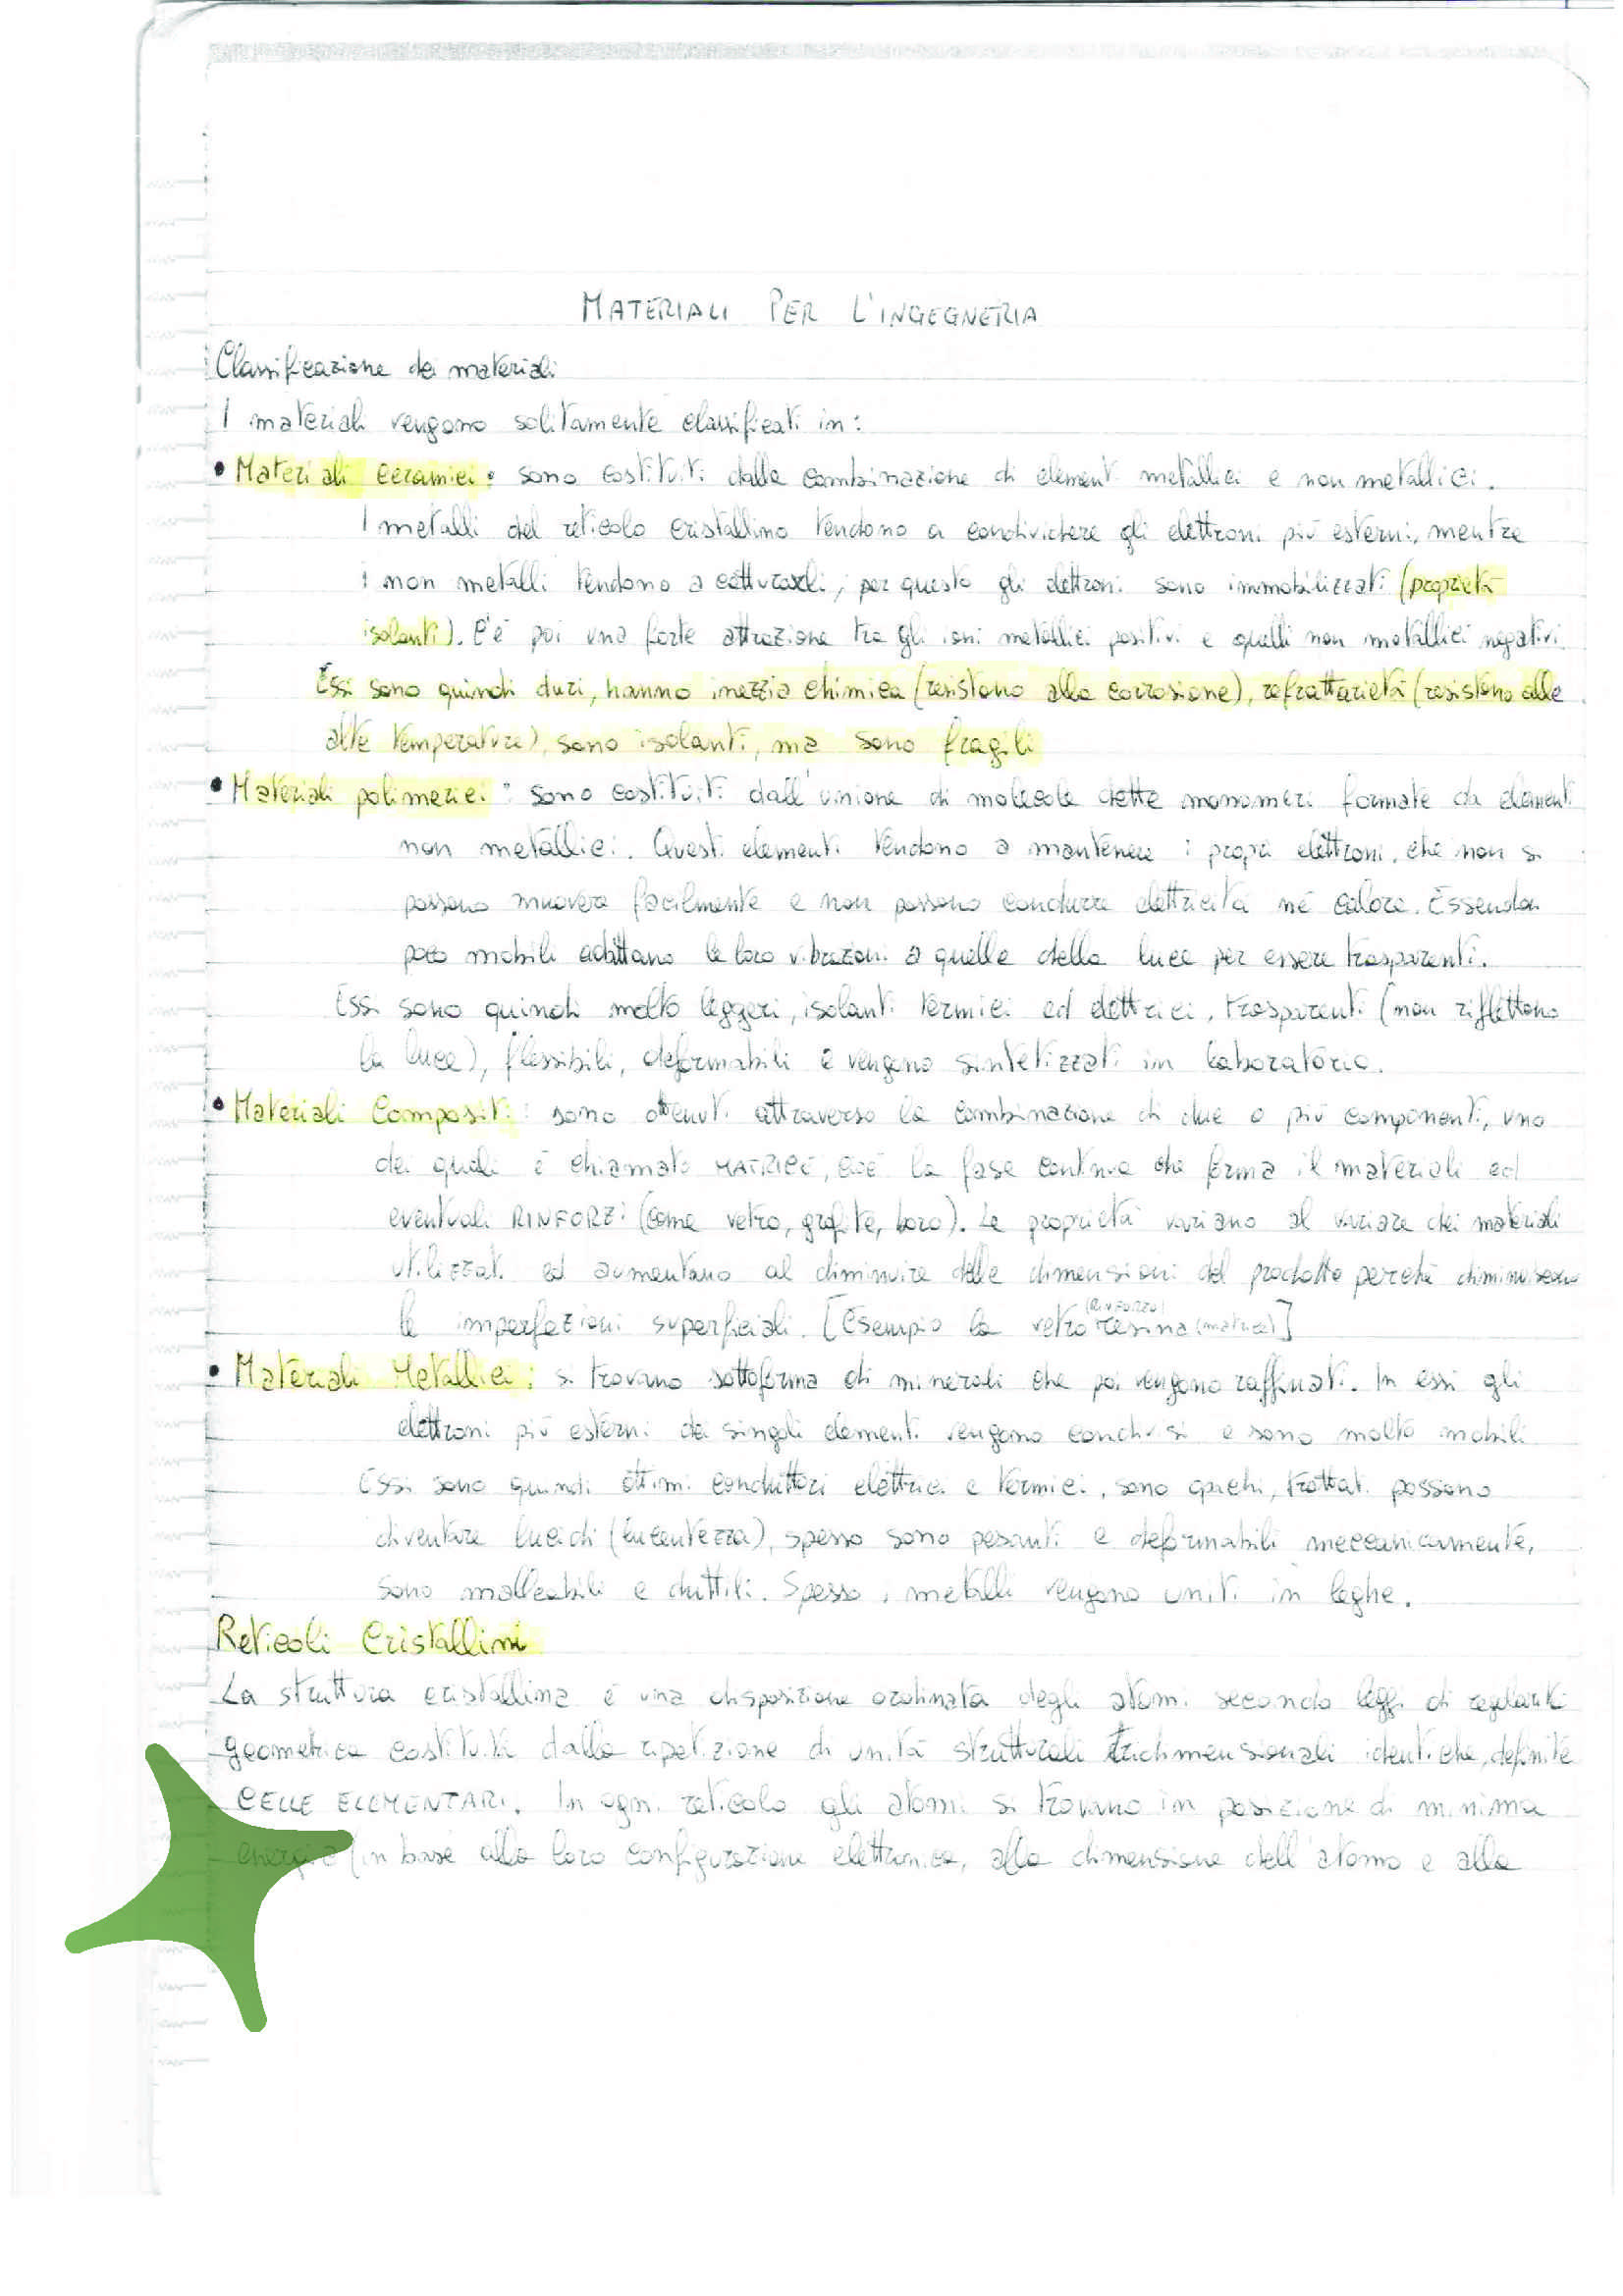 MATERIALI PER L'INGEGNERIA
Classificazione dei materiali
I materiali vengono solitamente classificati in:
• Materiali ceramici: sono costituiti dalla combinazione di elementi metallici e non metallici.
I metalli del reticolo cristallino tendono a condividere gli elettroni più esterni, mentre
i non metalli tendono a catturarli, per questo gli elettroni sono immobilizzati (proprietà
isolanti). C'è poi una forte attrazione tra gli ioni metallici positivi e quelli non metallici negativi.
Essi sono quindi duri, hanno inerzia chimica (resistono alla corrosione), refrattarietà (resistono alle
alte temperature), sono isolanti, ma sono fragili
• Materiali polimerici: sono costituiti dall'unione di molecole dette monomeri formate da elementi
non metallici. Questi elementi tendono a mantenere i propri elettroni, che non si
possono muovere facilmente e non possono condurre elettricità né calore. Essendo
poco mobili adattano le loro vibrazioni a quelle della luce per essere trasparenti.
Essi sono quindi molto leggeri, isolanti termici ed elettrici, trasparenti (non riflettono
la luce), flessibili, deformabili e vengono sintetizzati in laboratorio.
• Materiali Compositi: sono ottenuti attraverso la combinazione di due o più componenti, uno
dei quali è chiamato MATRICE, cioè la fase continua che forma il materiali ed
eventuali RINFORZI (come vetro, grafite, boro). Le proprietà variano al variare dei materiali
utilizzati ed aumentano al diminuire delle dimensioni del prodotto perché diminuiscono
le imperfezioni superficiali. [Esempio la vetro(RINFORZO)resina(matrice)]
• Materiali Metallici: si trovano sottoforma di minerali che poi vengono raffinati. In essi gli
elettroni più esterni dei singoli elementi vengono condivisi e sono molto mobili
Essi sono quindi ottimi conduttori elettrici e termici, sono opachi, trattati possono
diventare lucidi (lucentezza), spesso sono pesanti e deformabili meccanicamente,
sono malleabili e duttili. Spesso i metalli vengono uniti in leghe.
Reticoli Cristallini
La struttura cristallina è una disposizione ordinata degli atomi secondo leggi di regolarità
geometrica costituita dalla ripetizione di unità strutturali tridimensionali identiche, definite
CELLE ELEMENTARI. In ogni reticolo gli atomi si trovano in posizione di minima
energia (in base alla loro configurazione elettronica, alla dimensione dell'atomo e alla